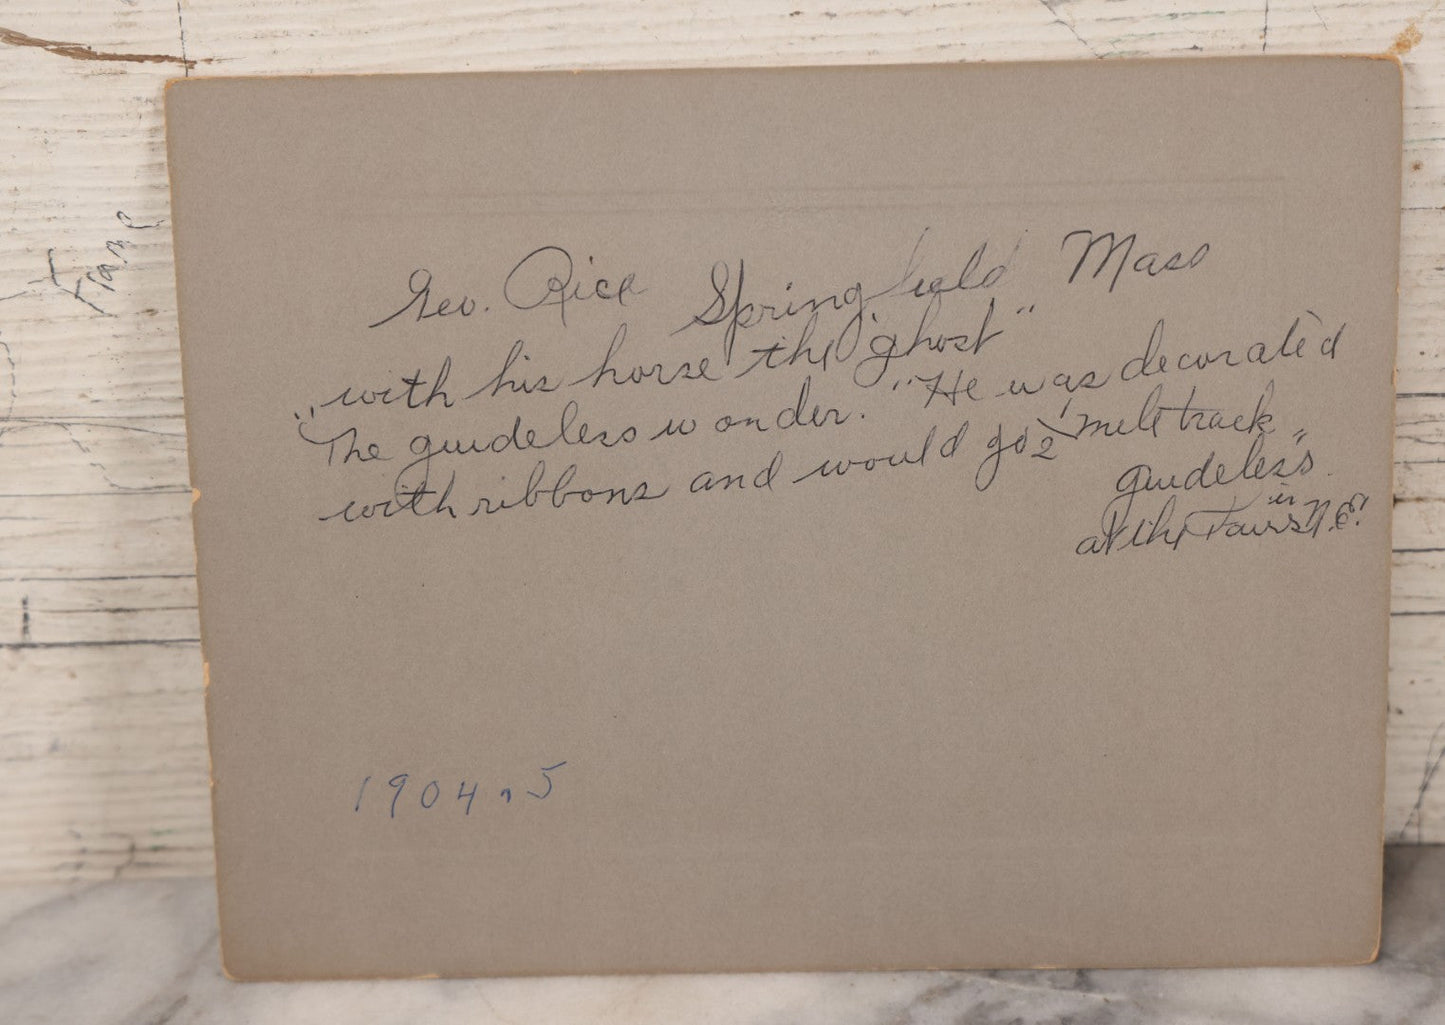 Geo. Rice Springfield Mass
with his horse the "ghost"
"The guideless wonder." He was decorated
with ribbons and would go 1/2 mile track
"guideless"
at the Fairs in N.E.!
1904.5